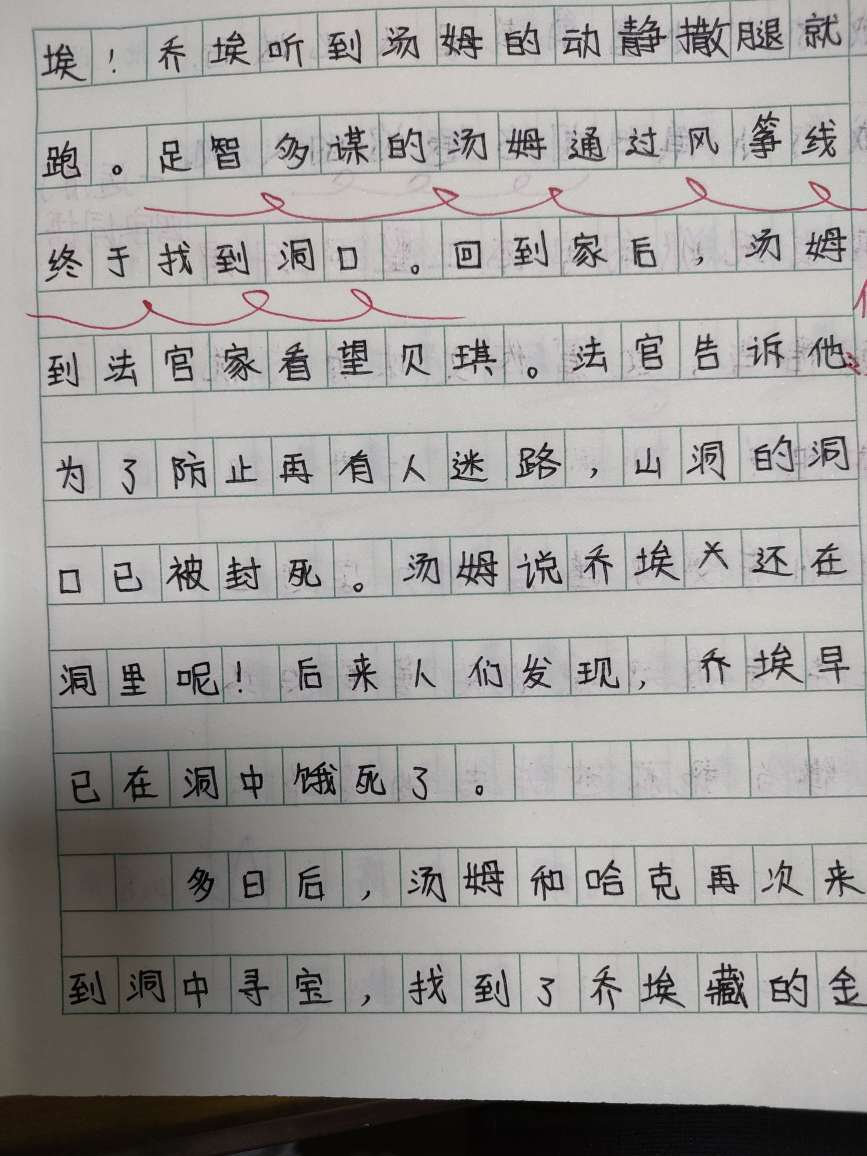 埃！乔埃听到汤姆的动静撒腿就
跑。足智多谋的汤姆通过风筝线
终于找到洞口。回到家后，汤姆
到法官家看望贝琪。法官告诉他
为了防止再有人迷路，山洞的洞
口已被封死。汤姆说乔埃还在
洞里呢！后来人们发现，乔埃早
已在洞中饿死了。
多日后，汤姆和哈克再次来
到洞中寻宝，找到了乔埃藏的金